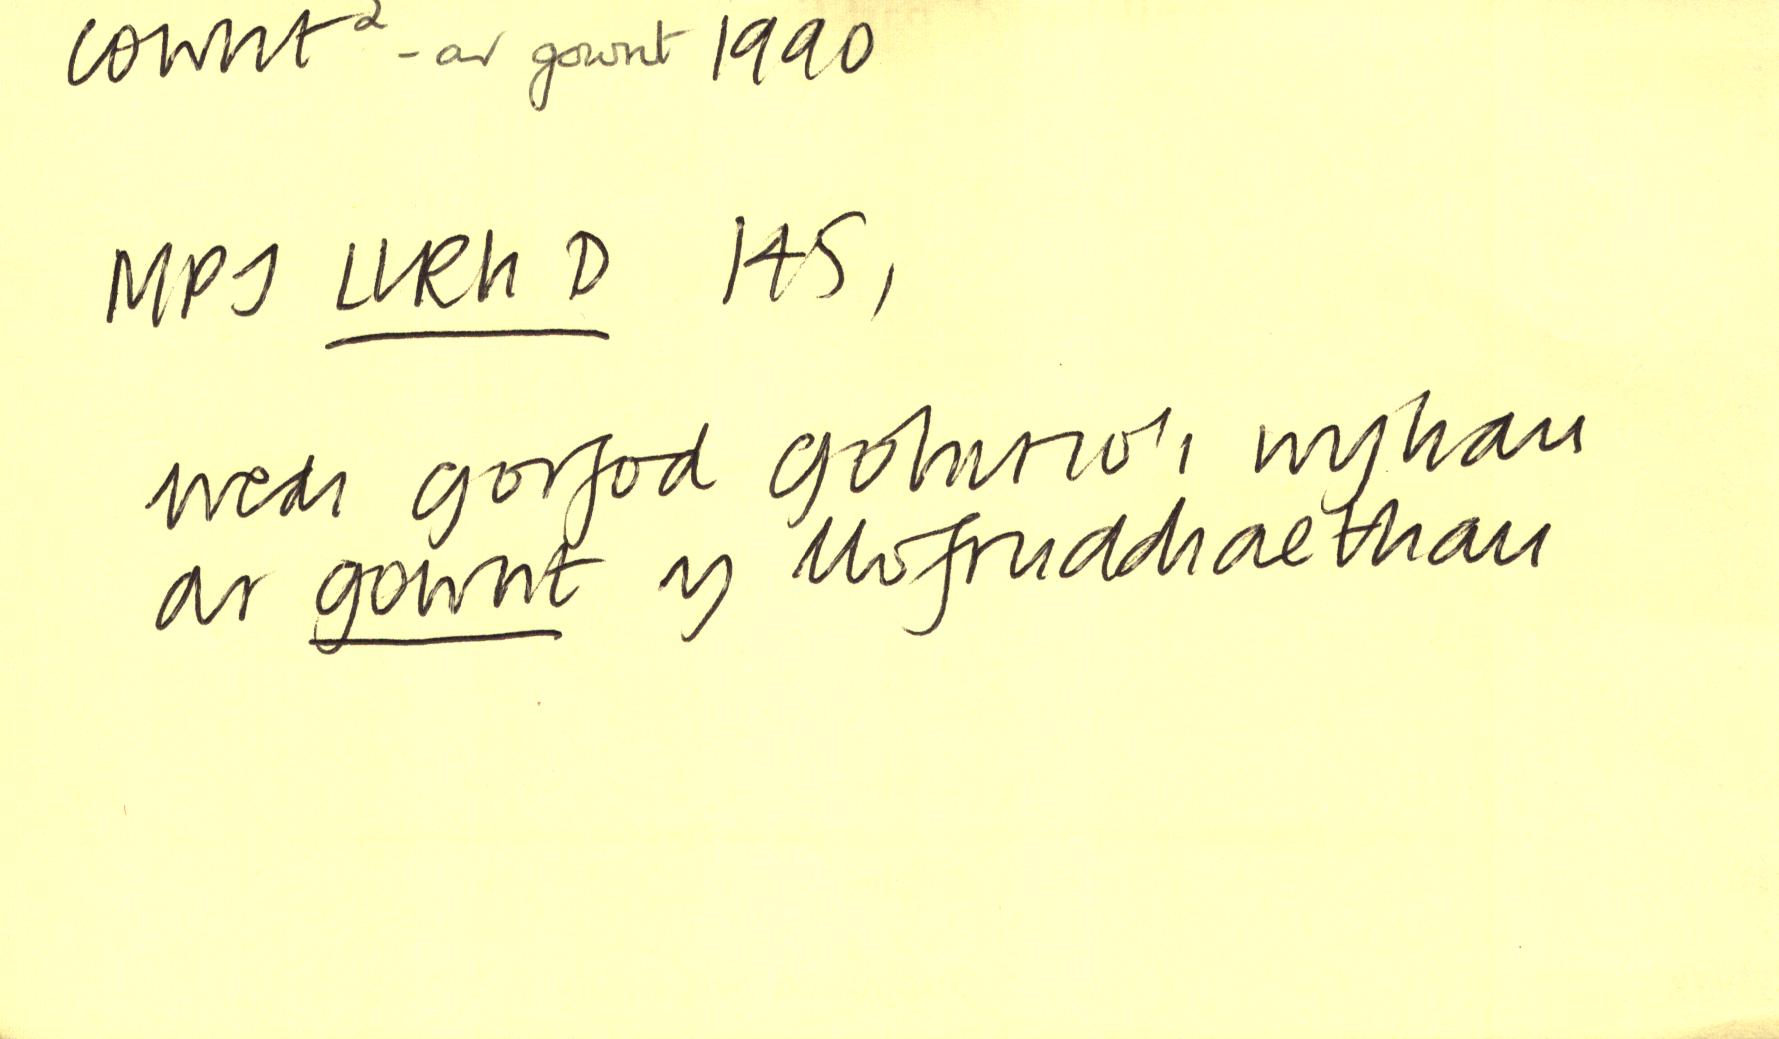 cownt² - ar gownt 1990
MPJ LlRh D 145,
wedi gorfod gohirio'i wyliau
ar gownt y llofruddiaethau